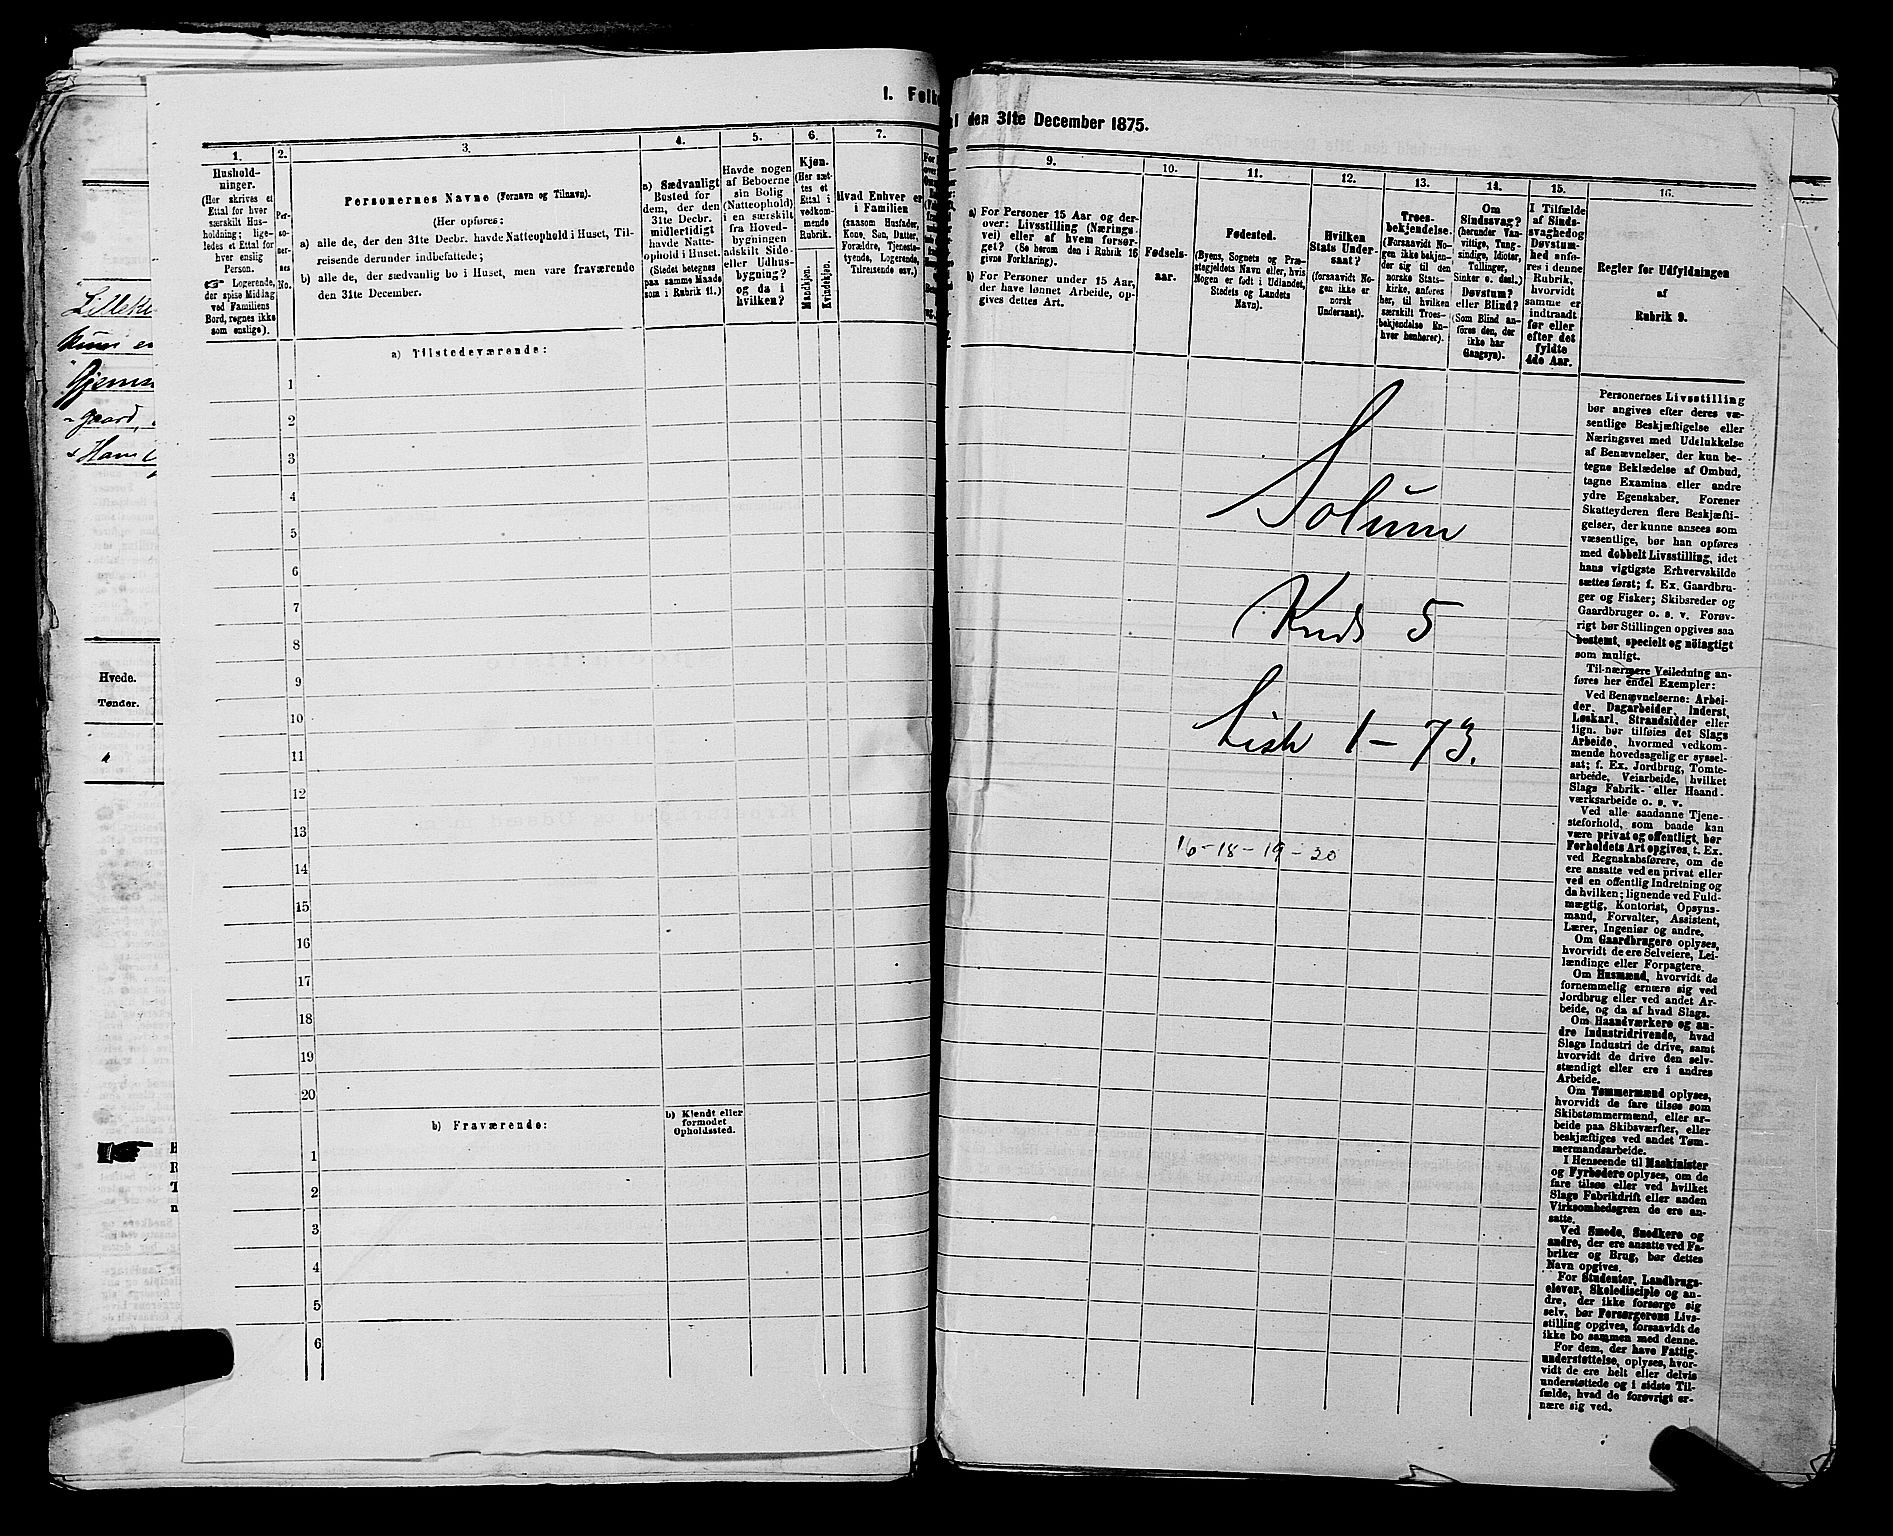 I. Folk
1.
2.
3.
4.
5.
6.
7.
Hushold-
ninger.
(Her skrives et
Ettal for hver
særskilt Hus-
holdning; lige-
ledes et Ettal for
hver enslig
Person.
☞ Logerende,
der spise Middag
ved Familiens
Bord, regnes ikke
som enslige).
Per-
so-
ner-
nes
No.
Personernes Navne (Fornavn og Tilnavn).
(Her opføres:
a) alle de, der den 31te Decbr. havde Natteophold i Huset, Til-
reisende derunder indbefattede;
b) alle de, der sædvanlig bo i Huset, men vare fraværende
den 31te December.
a) Sædvanligt
Bosted for
dem, der den
31te Decbr.
midlertidigt
havde Natte-
ophold i Huset.
(Stedet betegnes
paa samme Maade
som i Rubrik 11.)
Havde nogen
af Beboerne
sin Bolig
(Natteophold)
i en særskilt
fra Hoved-
bygningen
adskilt Side-
eller Udhus-
bygning?
og da i
hvilken?
Kjøn.
(Her sæt-
tes et
Ettal i
vedkom-
mende
Rubrik.
Mandkjøn.
Kvindekjøn.
Hvad Enhver er
i Familien
(saasom Husfader,
Kone, Søn, Datter,
Forældre, Tjeneste-
tyende, Logerende,
Tilreisende osv.)
a) Tilstedeværende:
1
2
3
4
5
6
7
8
9
10
11
12
13
14
15
16
17
18
19
20
b) Fraværende:
b) Kjendt eller
formodet
Opholdssted.
1
2
3
4
5
6
Hvede.
Tønder.
"
den 31te December 1875.
9.
10.
11.
12.
13.
14.
15.
16.
a) For Personer 15 Aar og der-
over: Livsstilling (Nærings-
vei) eller af hvem forsør-
get? (Se herom den i Rubrik 16
givne Forklaring).
b) For Personer under 15 Aar,
der have lønnet Arbeide, op-
gives dettes Art.
Fødsels-
aar.
Fødested.
(Byens, Sognets og Præ-
stegjeldets Navn eller, hvis
Nogen er født i Udlandet,
Stedets og Landets
Navn).
Hvilken
Stats Under-
saat?
(forsaavidt No-
gen ikke er
norsk
Undersaat).
Troes-
bekjendelse.
(Forsaavidt No-
gen ikke bekjen-
der sig til den
norske Stats-
kirke, anføres
her, til hvilken
særskilt Troes-
bekjendelse En-
hver henhører).
Om
Sindssvag?
(herunder Van-
vittige, Tung-
sindige, Idioter,
Tullinger,
Sinker o. desl.)
Døvstum?
eller Blind?
(Som Blind an-
føres den, der
ikke har
Gangsyn).
I Tilfælde
af Sinds-
svaghed og
Døvstum-
hed anfø-
res i denne
Rubrik,
hvorvidt
samme er
indtraadt
før eller
efter det
fyldte
4de Aar.
Regler for Udfyldningen
af
Rubrik 9.
Solum
Kreds 5
Liste 1 – 73.
16 – 18 – 19 – 20
Personernes Livsstilling
bør angives efter deres væ-
sentlige Beskjæftigelse eller
Næringsvei med Udelukkelse
af Benævnelser, der kun be-
tegne Beklædelse af Ombud,
tagne Examina eller andre
ydre Egenskaber. Forener
Skatteyderen flere Beskjæfti-
gelser, der kunne ansees som
væsentlige, bør han opføres
med dobbelt Livsstilling, idet
hans vigtigste Erhvervskilde
sættes først; f. Ex. Gaardbru-
ger og Fisker; Skibsreder og
Gaardbruger o. s. v. Forøv-
rigt bør Stillingen opgives saa
bestemt, specielt og nöiagtigt
som muligt.
Til nærmere Veiledning an-
føres her endel Exempler:
Ved Benævnelserne: Arbei-
der, Dagarbeider, Inderst,
Løskarl, Strandsidder eller
lign. bør tilføies det Slags
Arbeide, hvormed vedkom-
mende hovedsagelig er syssel-
sat; f. Ex. Jordbrug, Tomte-
arbeide, Veiarbeide, hvilket
Slags Fabrik- eller Haand-
værksarbeide o. s. v.
Ved alle saadanne Tjene-
steforhold, som baade kan
være privat og offentligt, bør
Forholdets Art opgives, t. Ex.
ved Regnskabsførere, om de
ere ansatte ved en privat eller
ved en offentlig Indretning og
da hvilken; lignende ved Fuld-
mægtig, Kontorist, Opsyns-
mand, Forvalter, Assistent,
Lærer, Ingeniør og andre.
Om Gaardbrugere oplyses,
hvorvidt de ere Selveiere, Lei-
lændinge eller Forpagtere.
Om Husmænd, hvorvidt de
fornemmelig ernære sig ved
Jordbrug eller ved andet Ar-
beide, og da af hvad Slags.
Om Haandværkere og an-
dre Industridrivende, hvad
Slags Industri de drive, samt
hvorvidt de drive den selv-
stændigt eller ere i andres
Arbeide.
Om Tømmermænd oplyses,
hvorvidt de fare tilsøs som
Skibstømmermænd, eller ar-
beide paa Skibsværfter, eller
beskjæftiges ved andet Tøm-
mermandsarbeide.
I Henseende til Maskinister
og Fyrbødere oplyses, om de
fare tilsøs eller ved hvilket
Slags Fabrikdrift eller anden
Virksomhedsgren de ere an-
satte.
Ved Smede, Snedkere og
andre, der ere ansatte ved Fa-
briker og Brug, bør dettes
Navn opgives.
For Studenter, Landbrugs-
elever, Skoledisciple og an-
dre, der ikke forsørge sig
selv, bør Forsørgerens Livs-
stilling opgives, forsaavidt de
ikke bo sammen med denne.
For dem, der have Fattig-
understøttelse, oplyses, hvor-
vidt de ere helt eller delvis
understøttede og i sidste Til-
fælde, hvad de forøvrigt er-
nære sig ved.